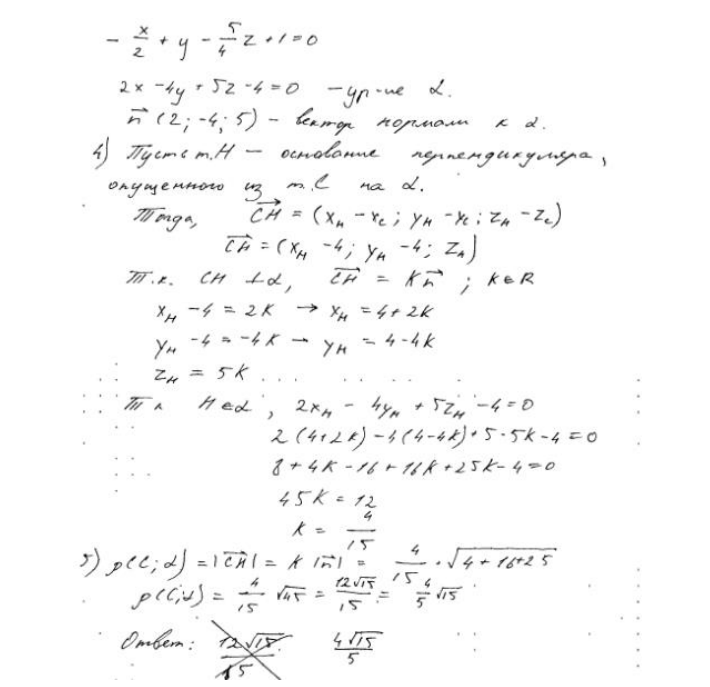 - x/2 + y - 5/4 z + 1 = 0
2x - 4y + 5z - 4 = 0 - ур-ие α.
n⃗ (2; -4; 5) - вектор нормали к α.
4) Пусть т.H - основание перпендикуляра,
опущенного из т.C на α.
Тогда, CH⃗ = (x_H - x_C; y_H - y_C; z_H - z_C)
CH⃗ = (x_H - 4; y_H - 4; z_H)
Т.к. CH ⊥ α, CH⃗ = Kn⃗ ; K∈R
x_H - 4 = 2K → x_H = 4+2K
y_H - 4 = -4K → y_H = 4-4K
z_H = 5K
Т к H∈α, 2x_H - 4y_H + 5z_H - 4 = 0
2(4+2K) - 4(4-4K) + 5·5K - 4 = 0
8 + 4K - 16 + 16K + 25K - 4 = 0
45K = 12
K = 4/15
5) ρ(C; α) = |CH⃗| = K |n⃗| = 4/15 · √(4+16+25)
ρ(C; α) = 4/15 √45 = 12√15/15 = 4/5 √15
Ответ: 12√15/15 4√15/5